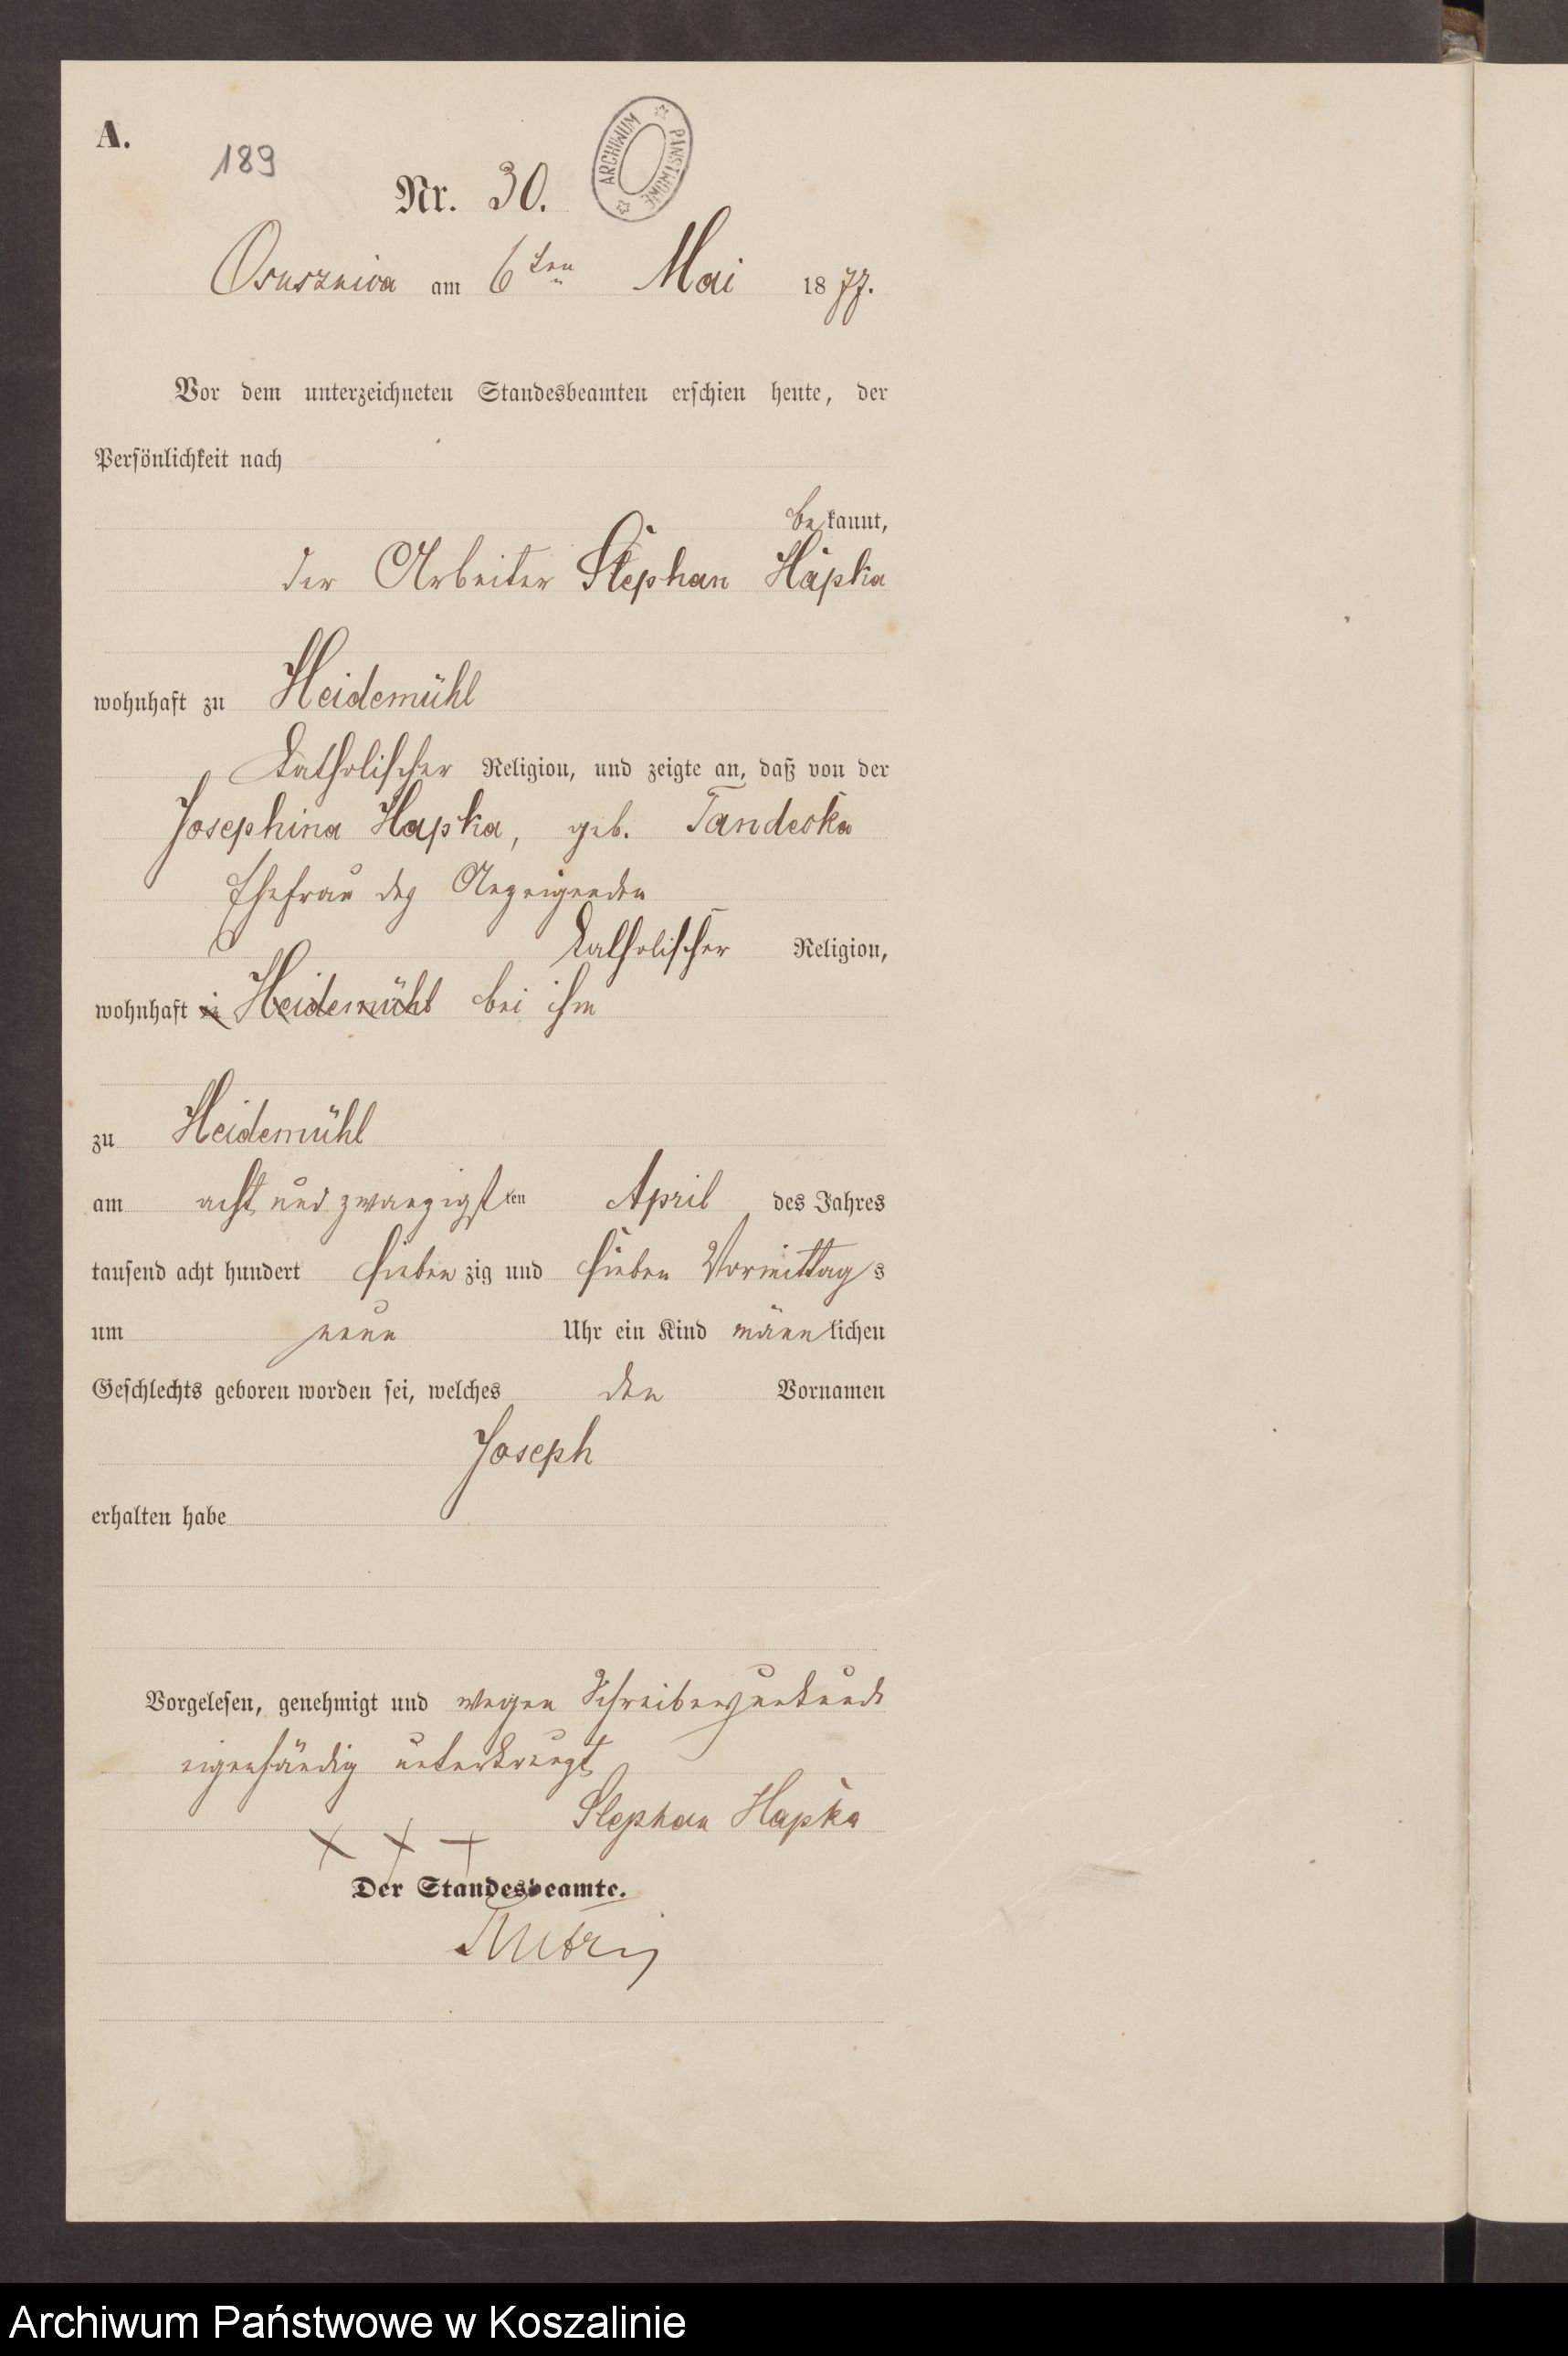 A.
189
Nr. 30.
ARCHIWUM PAŃSTWOWE
Osusznica am 6ten Mai 1877.
Vor dem unterzeichneten Standesbeamten erschien heute, der
Persönlichkeit nach
bekannt,
der Arbeiter Stephan Hapka
wohnhaft zu Heidemühl
Katholischer Religion, und zeigte an, daß von der
Josephina Hapka, geb. Tandeska
Ehefrau des Anzeigenden
Katholischer Religion,
wohnhaft in Heidemühl bei ihm
zu Heidemühl
am acht und zwanzigsten April des Jahres
tausend acht hundert siebenzig und sieben Vormittags
um neun Uhr ein Kind männlichen
Geschlechts geboren worden sei, welches den Vornamen
Joseph
erhalten habe
Vorgelesen, genehmigt und wegen Schreibensunkunde
eigenhändig unterkreuzt
Stephan Hapka
+ + +
Der Standesbeamte.
Archiwum Państwowe w Koszalinie